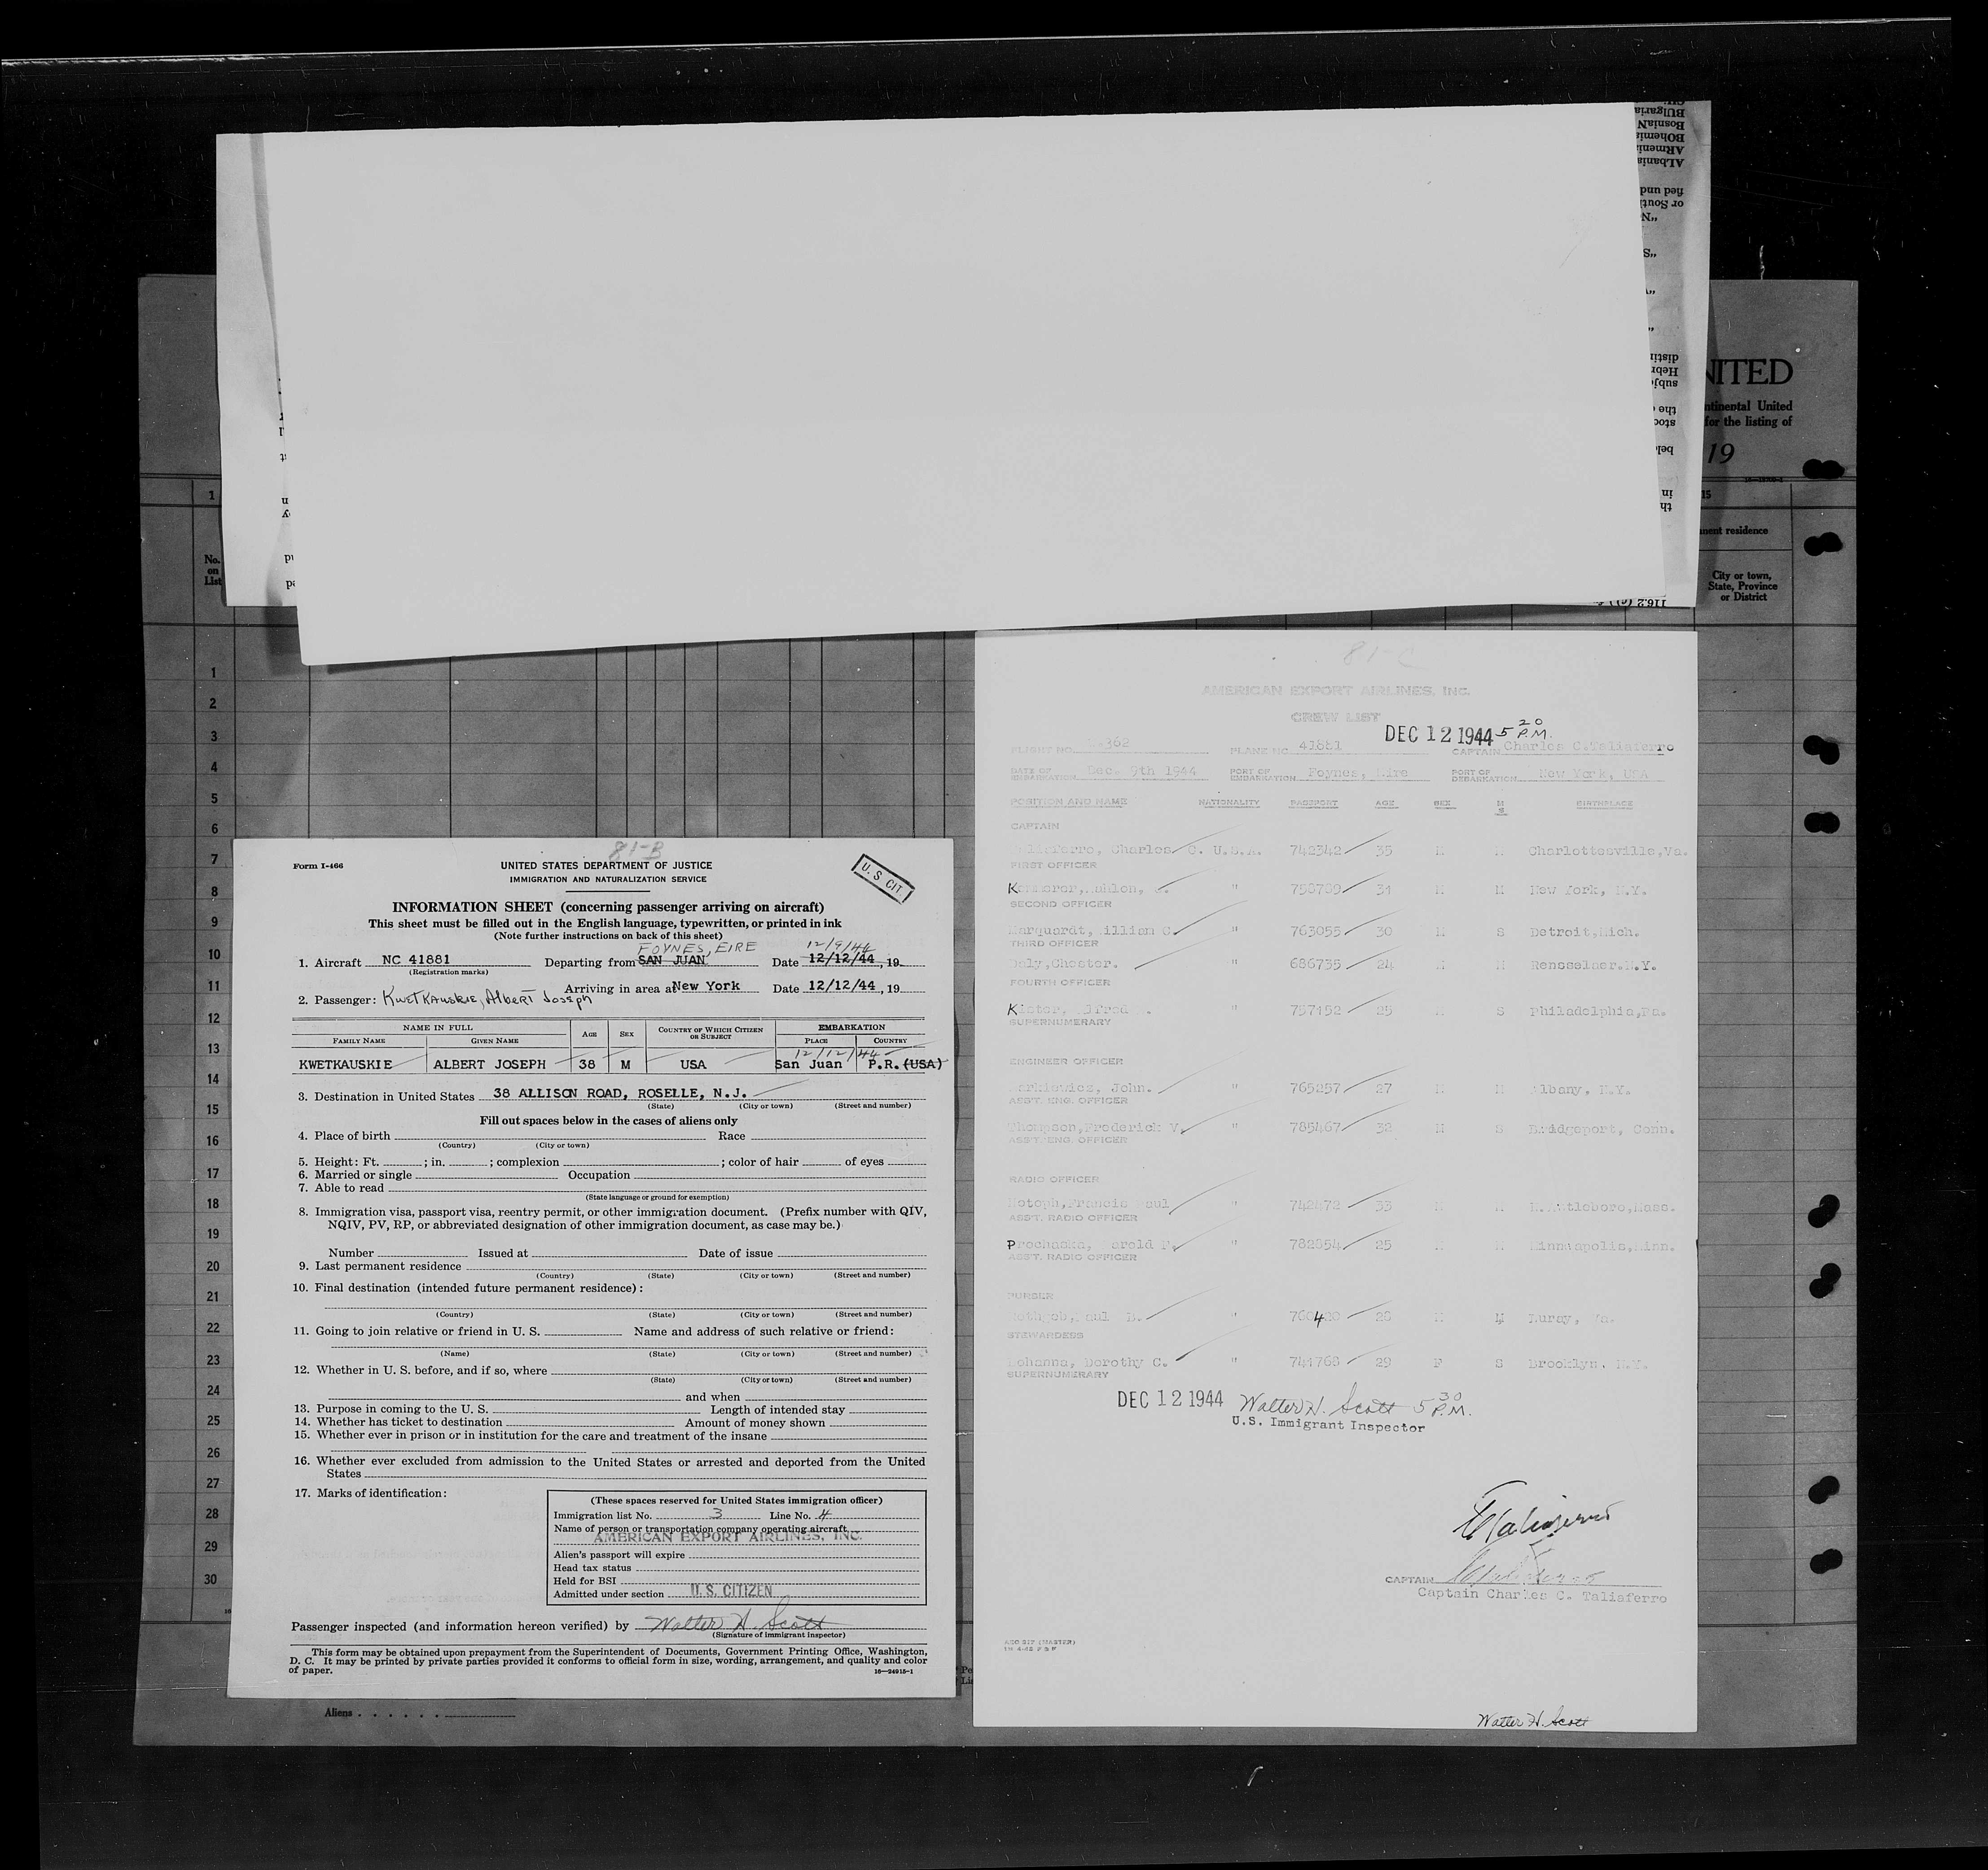 NITED
ntinental United
for the listing of
19
15
nent residence
City or town,
State, Province
or District
1
No.
on
List
1
2
3
4
5
6
7
8
9
10
11
12
13
14
15
16
17
18
19
20
21
22
23
24
25
26
27
28
29
30
Aliens
BULgaria
BOsniaN
BOhemia
ARMenia
ALBania
fied und
or South
"N
"S
distin
Hebr
subje
the
stoc
belo
in
th
116.2 (c)
81-B
Form I-466
UNITED STATES DEPARTMENT OF JUSTICE
IMMIGRATION AND NATURALIZATION SERVICE
U. S CIT.
INFORMATION SHEET (concerning passenger arriving on aircraft)
This sheet must be filled out in the English language, typewritten, or printed in ink
(Note further instructions on back of this sheet)
FOYNES, EIRE 12/9/44
1. Aircraft NC 41881 Departing from SAN JUAN Date 12/12/44, 19
(Registration marks)
Arriving in area at New York Date 12/12/44, 19
2. Passenger: Kwetkauskie, Albert Joseph
NAME IN FULL AGE SEX COUNTRY OF WHICH CITIZEN OR SUBJECT EMBARKATION
FAMILY NAME GIVEN NAME PLACE COUNTRY
12/12/44
KWETKAUSKIE ALBERT JOSEPH 38 M USA San Juan P.R. (USA)
3. Destination in United States 38 ALLISON ROAD, ROSELLE, N.J.
(State) (City or town) (Street and number)
Fill out spaces below in the cases of aliens only
4. Place of birth Race
(Country) (City or town)
5. Height: Ft. ; in. ; complexion ; color of hair of eyes
6. Married or single Occupation
7. Able to read
(State language or ground for exemption)
8. Immigration visa, passport visa, reentry permit, or other immigration document. (Prefix number with QIV,
NQIV, PV, RP, or abbreviated designation of other immigration document, as case may be.)
Number Issued at Date of issue
9. Last permanent residence
(Country) (State) (City or town) (Street and number)
10. Final destination (intended future permanent residence):
(Country) (State) (City or town) (Street and number)
11. Going to join relative or friend in U. S. Name and address of such relative or friend:
(Name) (State) (City or town) (Street and number)
12. Whether in U. S. before, and if so, where
(State) (City or town) (Street and number)
and when
13. Purpose in coming to the U. S. Length of intended stay
14. Whether has ticket to destination Amount of money shown
15. Whether ever in prison or in institution for the care and treatment of the insane
16. Whether ever excluded from admission to the United States or arrested and deported from the United
States
17. Marks of identification:
(These spaces reserved for United States immigration officer)
Immigration list No. 3 Line No. 4
Name of person or transportation company operating aircraft
AMERICAN EXPORT AIRLINES, INC.
Alien's passport will expire
Head tax status
Held for BSI
Admitted under section U. S. CITIZEN
Passenger inspected (and information hereon verified) by Walter H. Scott
(Signature of immigrant inspector)
This form may be obtained upon prepayment from the Superintendent of Documents, Government Printing Office, Washington,
D. C. It may be printed by private parties provided it conforms to official form in size, wording, arrangement, and quality and color
of paper. 16—24915-1
81-C
AMERICAN EXPORT AIRLINES, INC.
CREW LIST
DEC 12 1944 5 20 P.M.
FLIGHT NO. 362 PLANE NO. 41881 CAPTAIN Charles C. Taliaferro
DATE OF EMBARKATION Dec. 9th 1944 PORT OF EMBARKATION Foynes, Eire PORT OF DEBARKATION New York, USA
POSITION AND NAME NATIONALITY PASSPORT AGE SEX M S BIRTHPLACE
CAPTAIN
Taliaferro, Charles C. U.S.A. 742342 35 M M Charlottesville, Va.
FIRST OFFICER
Kemmerer, Mahlon, " 758789 31 M M New York, N.Y.
SECOND OFFICER
Marquardt, William C. " 763055 30 M S Detroit, Mich.
THIRD OFFICER
Daly, Chester. " 686735 24 M M Rensselaer, N.Y.
FOURTH OFFICER
Alfred " 757152 25 M S Philadelphia, Pa.
SUPERNUMERARY
ENGINEER OFFICER
John. " 765257 27 M M Albany, N.Y.
ASST. ENG. OFFICER
Thompson, Frederick V. " 785467 32 M S Bridgeport, Conn.
ASST. ENG. OFFICER
RADIO OFFICER
Francis Paul " 742472 33 M M N. Attleboro, Mass.
ASST. RADIO OFFICER
Prochaska, Harold F. " 782854 25 M M Minneapolis, Minn.
ASST. RADIO OFFICER
PURSER
Rothgeb, Paul B. " 760420 28 M M Luray, Va.
STEWARDESS
Bohanna, Dorothy C. " 741768 29 F S Brooklyn, N.Y.
SUPERNUMERARY
DEC 12 1944 Walter H. Scott 5 30 P.M.
U.S. Immigrant Inspector
C C Taliaferro
CAPTAIN
Captain Charles C. Taliaferro
AEC 217 (MASTER)
Walter H. Scott